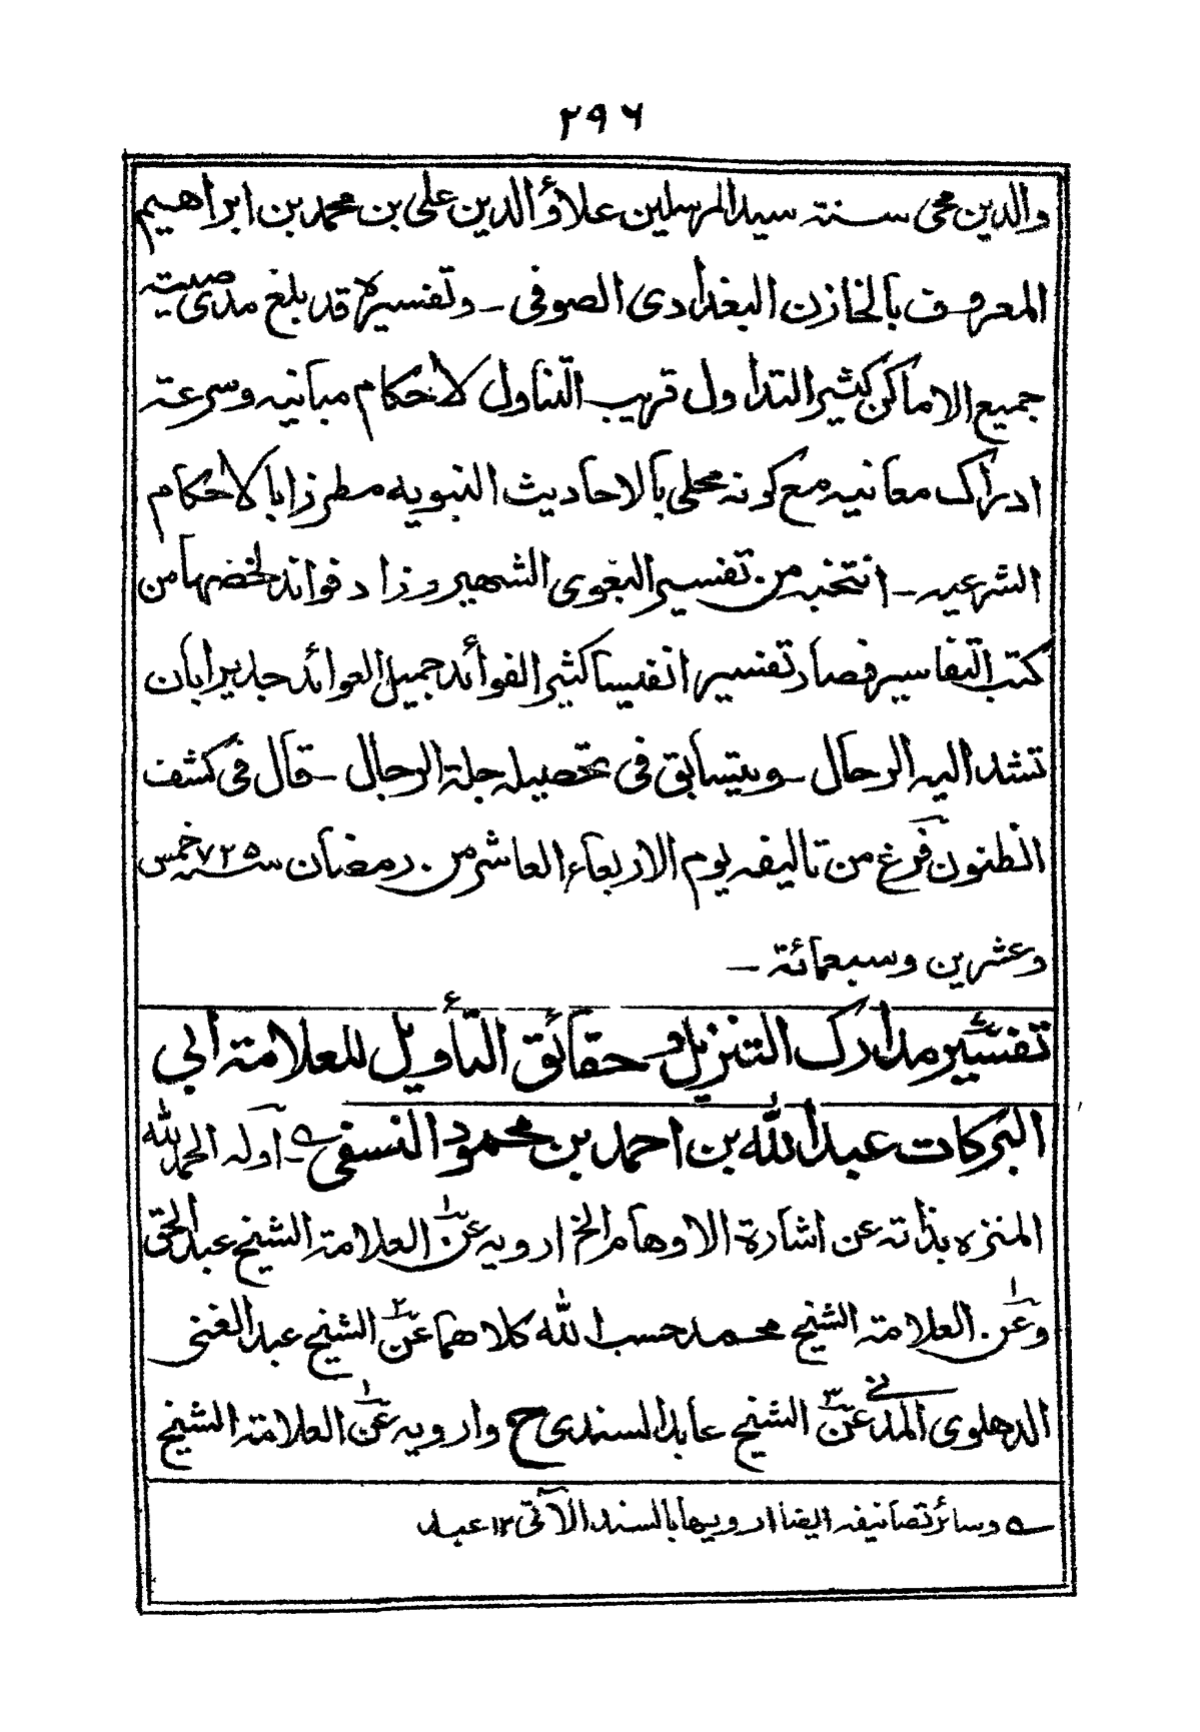 ٢٩٦
والدين محى سنة سيد المرسلين علاؤ الدين على بن محمد بن ابراهيم
المعروف بالخازن البغدادى الصوفى ـ وتفسيره قد بلغ مدى صيته
جميع الاماكن كثير التداول قريب التناول لأحكام مبانيه وسرعة
ادراك معانيه مع كونه محلى بالاحاديث النبويه مطرزا بالاحكام
الشرعيه ـ انتخبه من تفسير البغوى الشهير وزاد فوائد لخصها من
كتب التفاسير فصار تفسيرا نفيسا كثير الفوائد جميل العوائد جديرا بان
تشد اليه الرحال ـ ويتسابق فى تحصيله جلة الرجال ـ قال فى كشف
الظنون فرغ من تاليفه يوم الاربعاء العاشر من رمضان سنة ٧٢٥ خمس
وعشرين وسبعمائة ـ
تفسير مدارك التنزيل وحقائق التأويل للعلامة ابي
البركات عبد الله بن احمد بن محمود النسفى ؎ ـ اوله الحمد لله
المنزه بذاته عن اشارة الاوهام الخ ارويه عن١ العلامة الشيخ عبد الحق
وعن١ العلامة الشيخ محمد حسب الله كلاهما عن٢ الشيخ عبد الغنى
الدهلوى المدني عن٣ الشيخ عابد السندى ح وارويه عن١ العلامة الشيخ
؎ وسائر تصانيفه ايضا ارويها بالسند الآتى ١٢ عبد